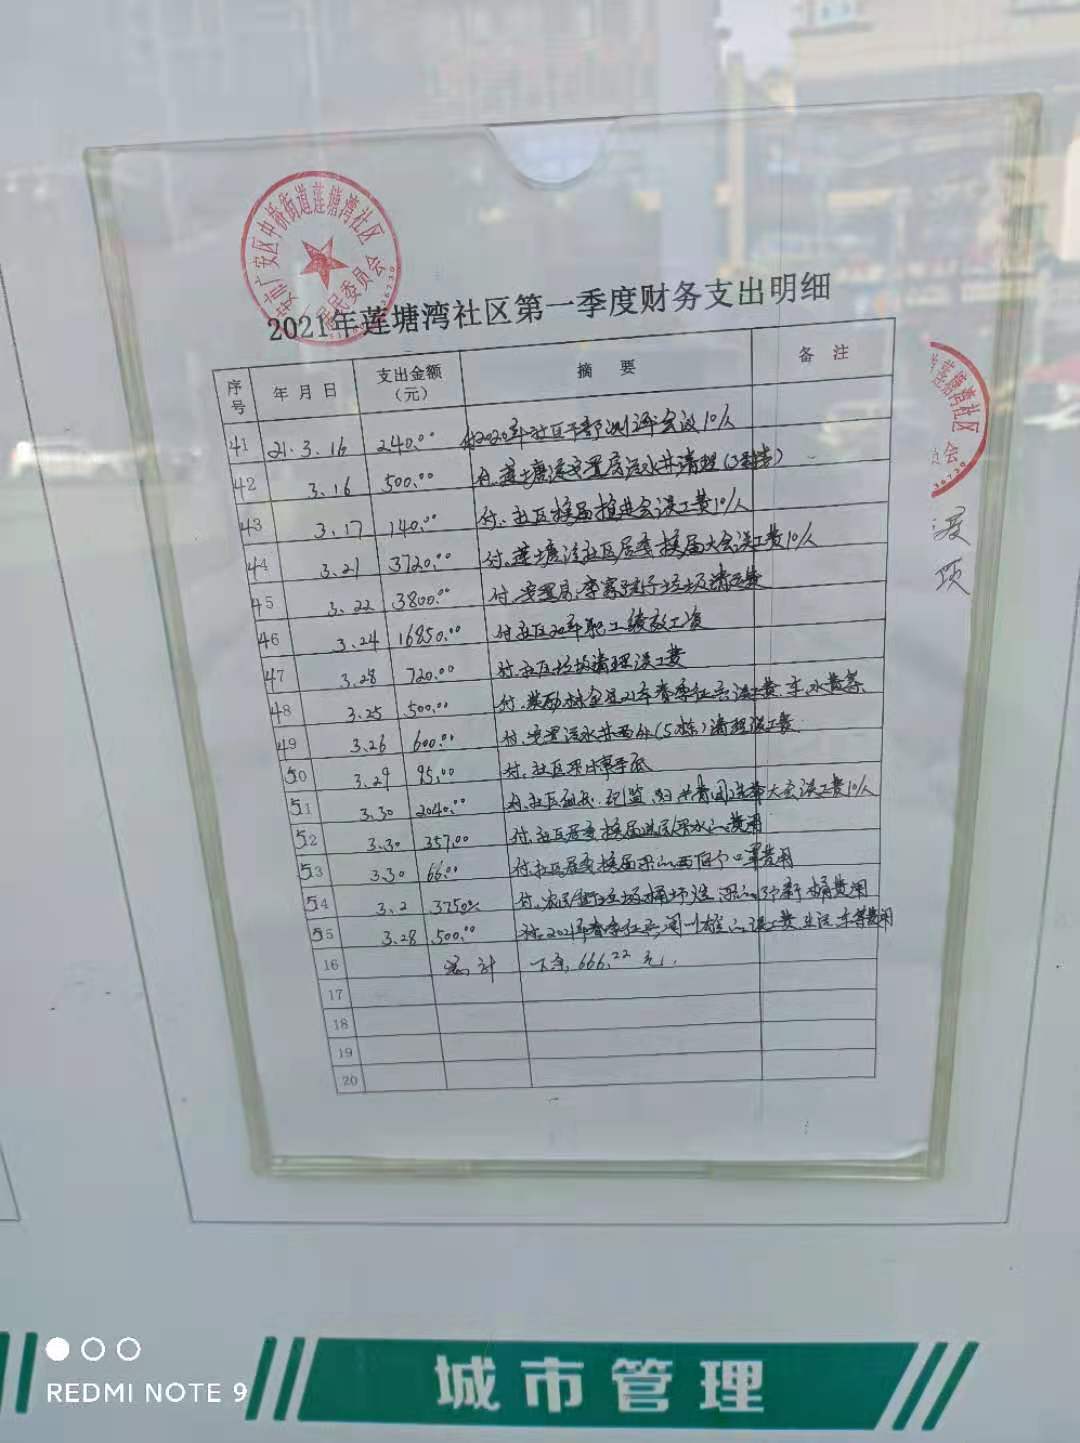 广安区中桥街道莲塘湾社区
居民委员会
2021年莲塘湾社区第一季度财务支出明细
序号 年月日 支出金额（元） 摘要 备注
41 21.3.16 240.00 付2020年社区干部测评会议10人
42 3.16 500.00 付.莲塘湾安置房污水井清理
43 3.17 140.00 付.社区换届推进会误工费10人
44 3.21 3720.00 付.莲塘湾社区居委换届大会误工费10人
45 3.22 3800.00 付.安置房.李家 垃圾清运费
46 3.24 16850.00 付社区20年职工绩效工资
47 3.28 720.00 付.社区垃圾清理误工费
48 3.25 500.00 付. 21年春季征兵误工费.车.水费等
49 3.26 600.00 付.安置污水井 (5栋)清理误工费.
50 3.29 95.00 付.社区
51 3.30 2040.00 付.社区 选举大会误工费10人
52 3.30 357.00 付.社区居委换届 水 费用
53 3.30 66.00 付社区居委换届 口罩费用
54 3.2 3750 付.农民街垃圾桶 桶费用
55 3.28 500.00 付.2021年春季征兵 误工费.生活.车等费用
16 总计 666.22元.
17
18
19
20
莲塘湾社区
城市管理
REDMI NOTE 9